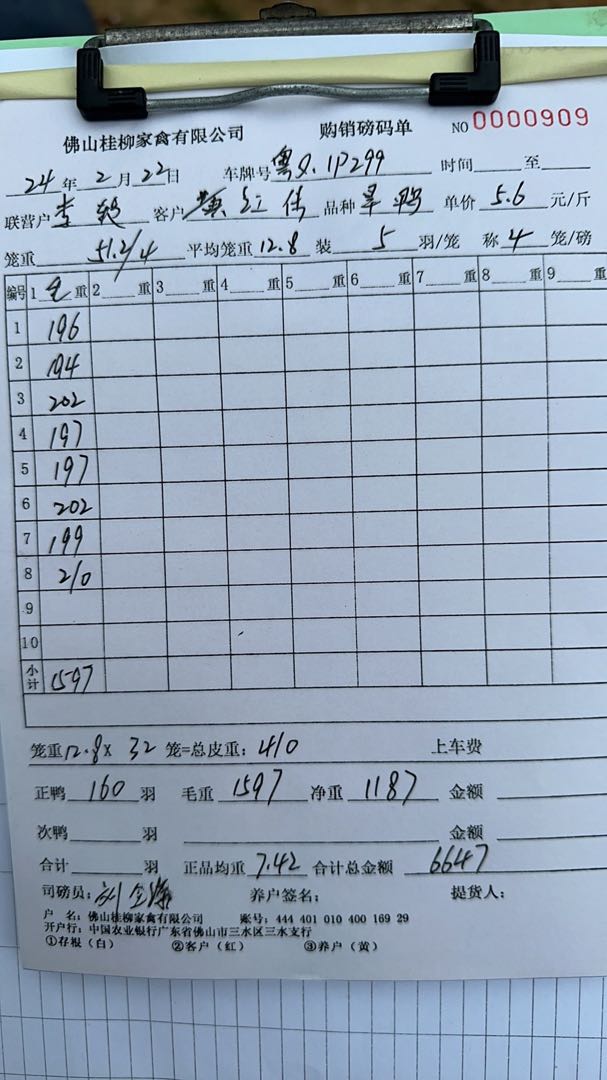 佛山桂柳家禽有限公司 购销磅码单 NO 0000909
24年2月22日 车牌号 粤Q.1P299 时间 至
联营户 李 客户 黄红伟 品种 单价 5.6 元/斤
笼重 51.2/4 平均笼重 12.8 装 5 羽/笼 称 4 笼/磅
编号 1 毛 重 2 重 3 重 4 重 5 重 6 重 7 重 8 重 9
1 196
2 194
3 202
4 197
5 197
6 202
7 199
8 210
9
10
小计 1597
笼重 12.8 x 32 笼=总皮重: 410 上车费
正鸭 160 羽 毛重 1597 净重 1187 金额
次鸭 羽 金额
合计 羽 正品均重 7.42 合计总金额 6647
司磅员: 刘 养户签名: 提货人:
户 名: 佛山桂柳家禽有限公司 账号: 444 401 010 400 169 29
开户行: 中国农业银行广东省佛山市三水区三水支行
①存根(白) ②客户(红) ③养户(黄)